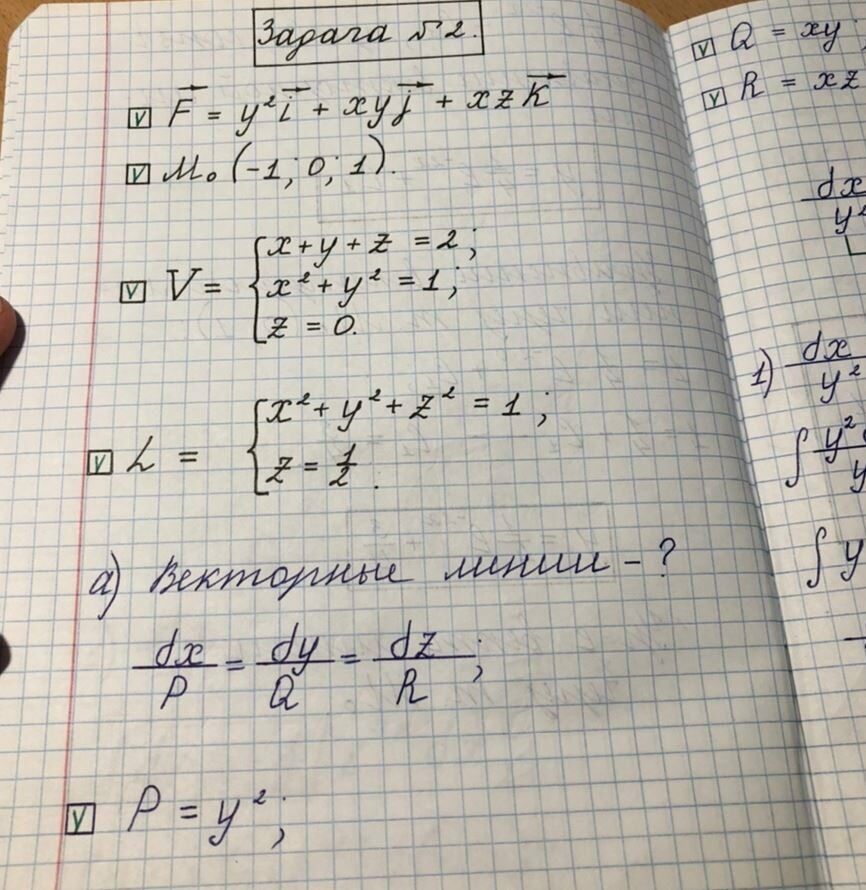 Задача №2.
☑ F⃗ = y²i⃗ + xyj⃗ + xzk⃗
☑ M₀(-1; 0; 1).
☑ V = { x + y + z = 2;
x² + y² = 1;
z = 0.
☑ L = { x² + y² + z² = 1;
z = 1/2.
а) Векторные линии - ?
dx/P = dy/Q = dz/R;
☑ P = y²;
☑ Q = xy
☑ R = xz
dx/y²
1) dx/y²
∫ y²
∫ y